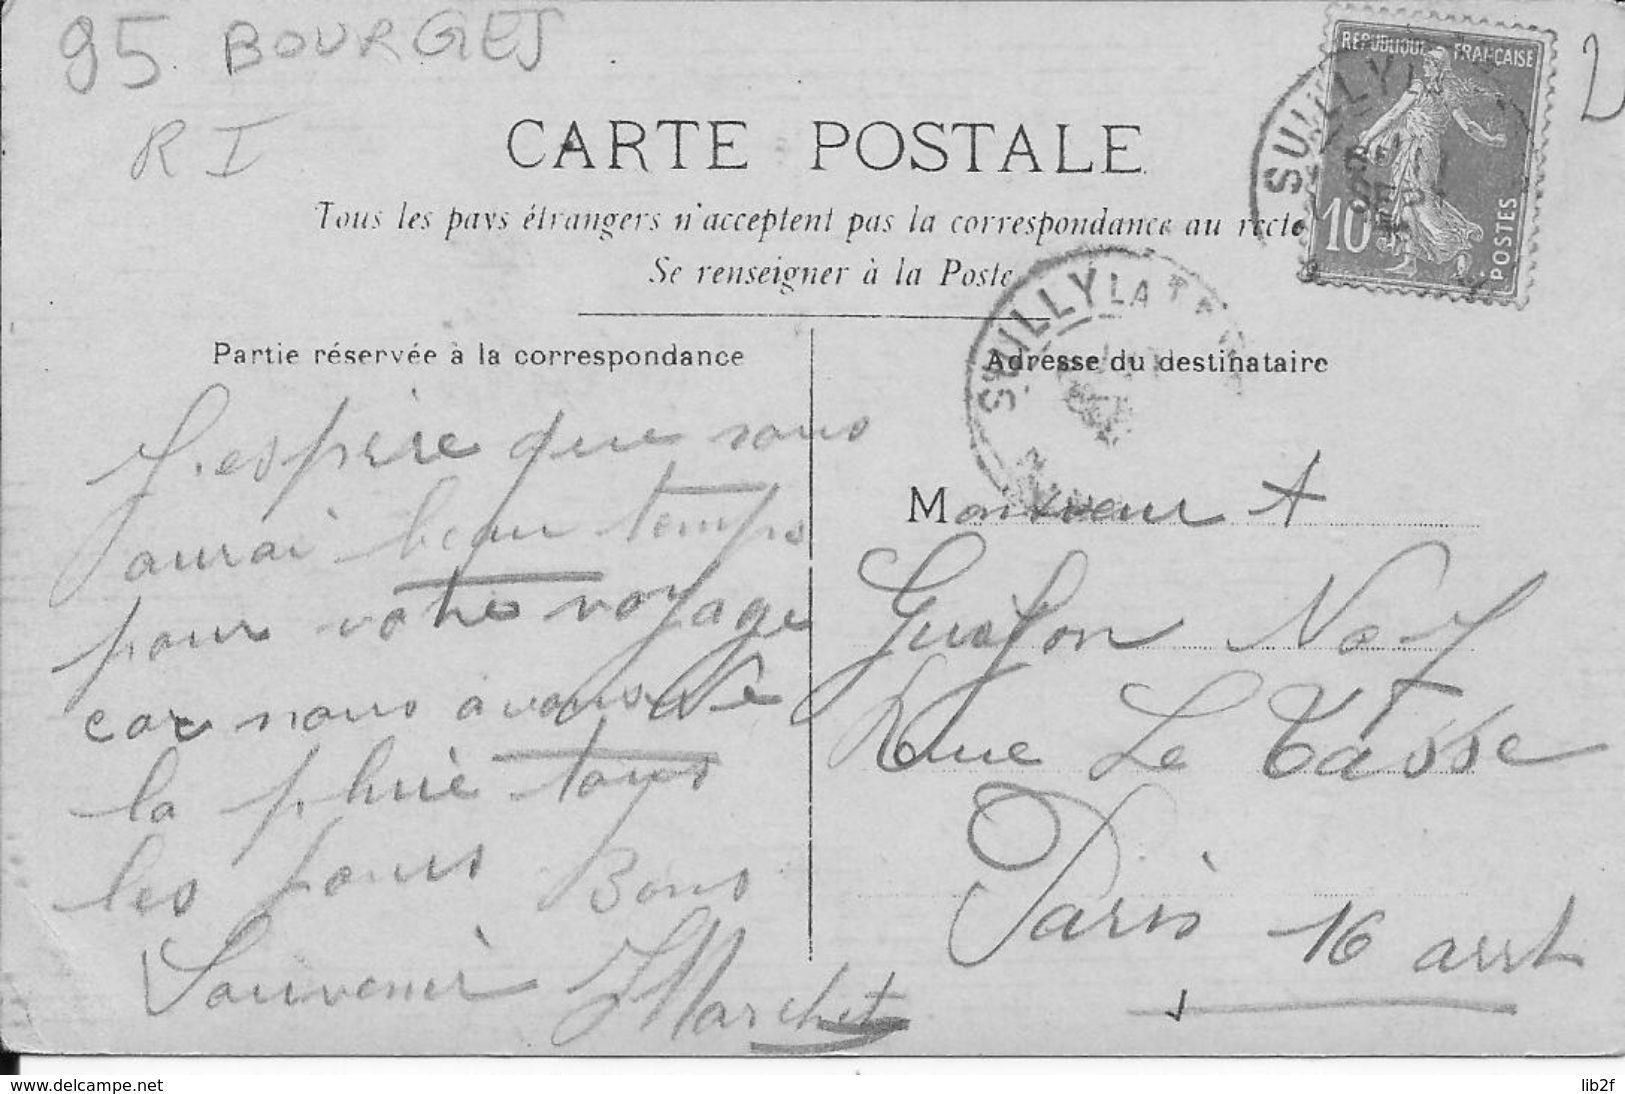 95 BOURGES
R I
CARTE POSTALE
Tous les pays étrangers n'acceptent pas la correspondance au recto
Se renseigner à la Poste
REPUBLIQUE FRANÇAISE
10
POSTES
SUILLY LA
SUILLY LA T
Partie réservée à la correspondance
J'espère que vous
aurai beau temps
pour votre voyage
car nous avons
la pluie tous
les jours Bons
Souvenir J Marchet
Adresse du destinataire
Monsieur A
Guislon No 7
Rue Le Tasse
Paris 16 arrt
www.delcampe.net
lib2f